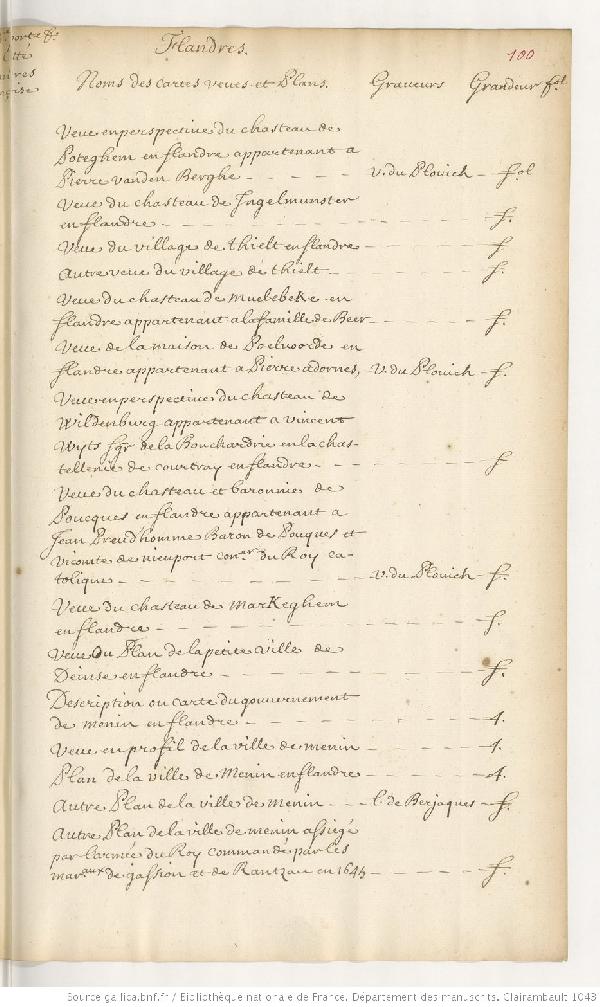 Flandres.
100
Noms des cartes veues et Plans. Graveurs Grandeur fol.
Veue en perspective du chasteau de
Poteghem en flandre appartenant a
Pierre vanden Berghe - - - - - v. du Plouich - fol
Veue du chasteau de Ingelmunster
en flandre - - - - - - - - f.
Veue du village de thielt en flandre - - - - f
Autre veue du village de thielt - - - - - f.
Veue du chasteau de Muelebeke en
flandre appartenant a la famille de Beer - - - - f.
Veue de la maison de Poelvoorde en
flandre appartenant a Pierre adornes, v. du Plouich - f.
Veue en perspective du chasteau de
Wildenburg appartenant a vincent
Wyts sgr de la Bouchardrie en la chas-
tellenie de courtray en flandre - - - - - - f
Veue du chasteau et baronnie de
Poucques en flandre appartenant a
Jean Preudhomme Baron de Pouques et
vicomte de nieuport coner du Roy ca-
tolique - - - - - - - - v. du Plouich - f.
Veue du chasteau de MarKeghem
en flandre - - - - - - - - f.
Veue du Plan de la petite ville de
Deinse en flandre - - - - - - - f.
Description ou carte du gouvernement
de menin en flandre - - - - - - - 4.
Veue en profil de la ville de menin - - - - - 4.
Plan de la ville de Menin en flandre - - - - - 4.
Autre Plan de la ville de menin - - - l. de Berjaques - f.
Autre Plan de la ville de menin assiegé
par l'armée du Roy commandée par les
maraux de gassion et de Rantzau en 1645 - - - - - f.
Source gallica.bnf.fr / Bibliothèque nationale de France. Département des manuscrits. Clairambault 1043